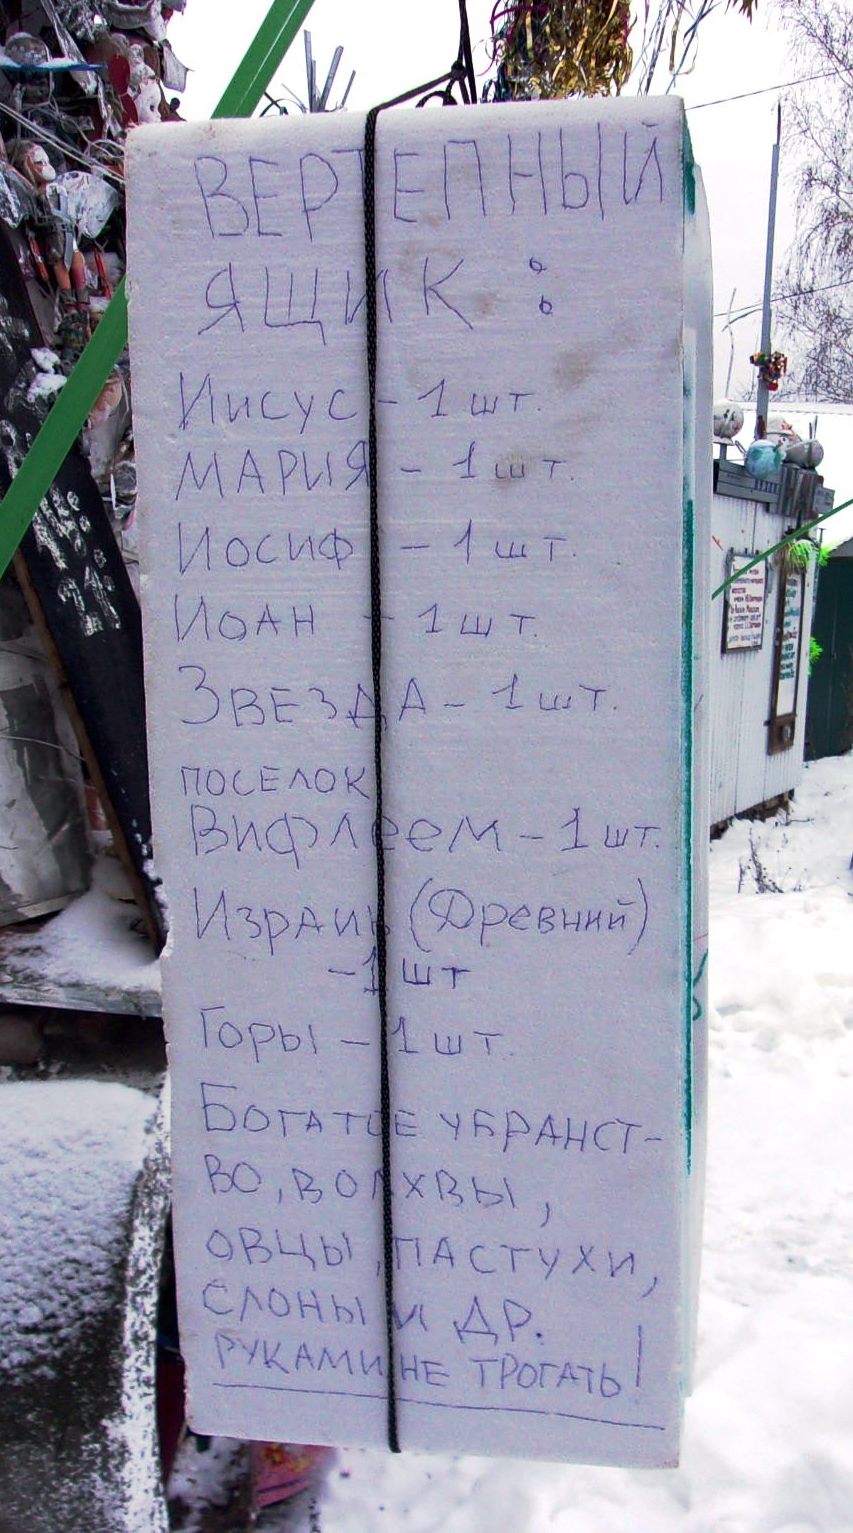 ВЕРТЕПНЫЙ
ЯЩИК :
Иисус - 1 шт.
МАРИЯ - 1 шт.
Иосиф - 1 шт.
Иоан - 1 шт.
Звезда - 1 шт.
поселок
Вифлеем - 1 шт.
Израиль (Древний)
- 1 шт
Горы - 1 шт.
Богатое убранст-
во, волхвы,
овцы, пастухи,
слоны и др.
РУКАМИ НЕ ТРОГАТЬ!